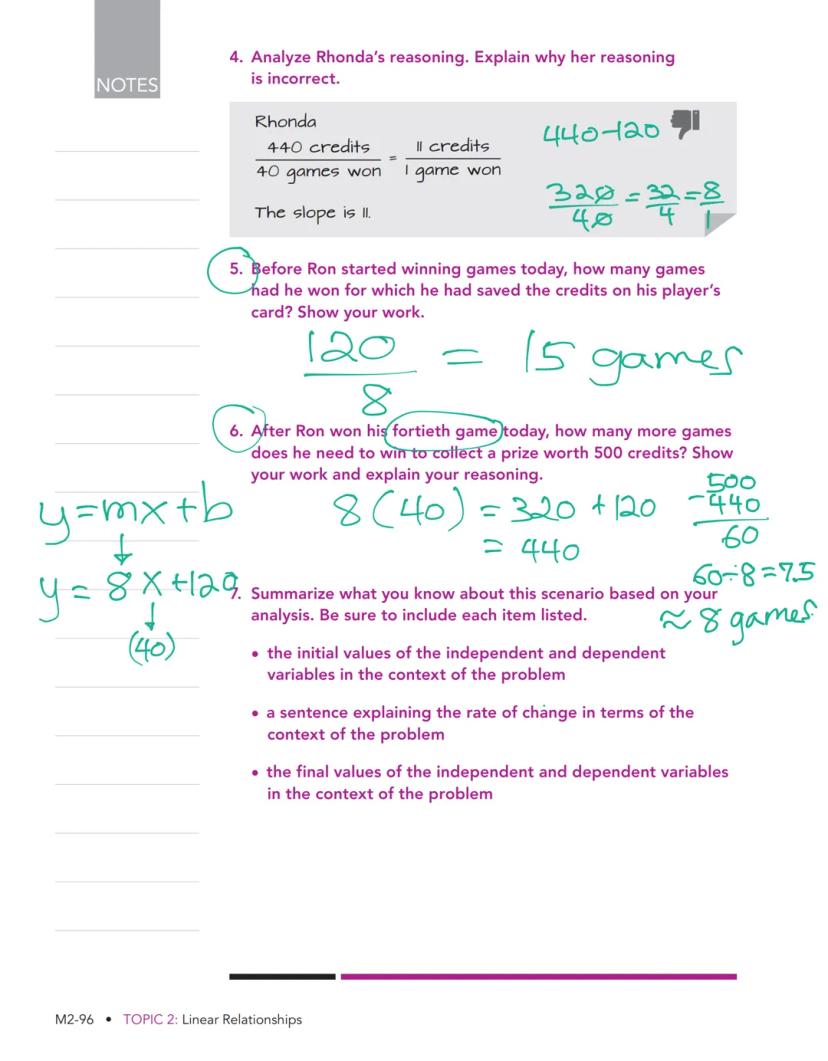 NOTES
4. Analyze Rhonda's reasoning. Explain why her reasoning
is incorrect.
Rhonda
440 credits / 40 games won = 11 credits / 1 game won
The slope is 11.
440-120
320/40 = 32/4 = 8/1
5. Before Ron started winning games today, how many games
had he won for which he had saved the credits on his player's
card? Show your work.
120/8 = 15 games
6. After Ron won his fortieth game today, how many more games
does he need to win to collect a prize worth 500 credits? Show
your work and explain your reasoning.
y=mx+b
y = 8x+120
(40)
8(40) = 320 +120
= 440
500
-440
60
60÷8=7.5
≈ 8 games
7. Summarize what you know about this scenario based on your
analysis. Be sure to include each item listed.
• the initial values of the independent and dependent
variables in the context of the problem
• a sentence explaining the rate of change in terms of the
context of the problem
• the final values of the independent and dependent variables
in the context of the problem
M2-96 • TOPIC 2: Linear Relationships